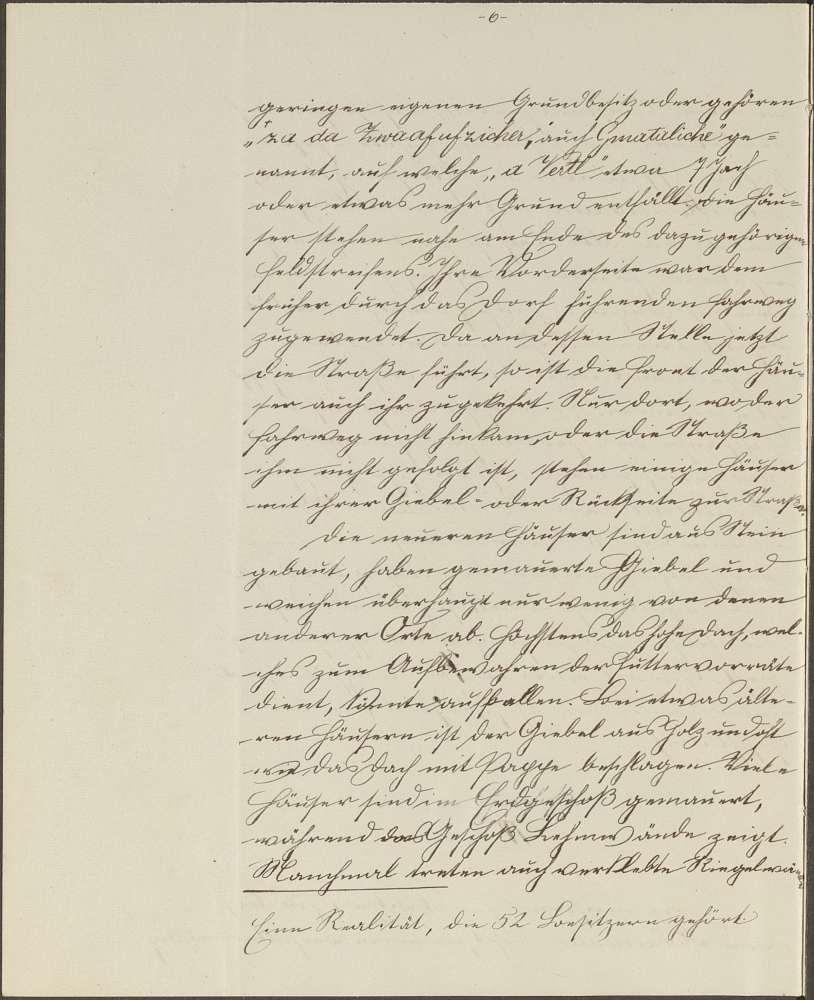 -6-
geringen eigenen Grundbesitz oder gehören
„za da Zwaafufzicher,+ auch Gmataliche" ge=
nannt, auf welche „a Vertl" etwa 7 Joch
oder etwas mehr Grund entfällt. Die Häu=
ser stehen nahe am Ende des dazugehörigen
Feldstreifens. Ihre Vorderseite war dem
früher durch das Dorf führenden Fahrweg
zugewendet. Da an dessen Stelle jetzt
die Straße führt, so ist die Front der Häu=
ser auch ihr zugekehrt. Nur dort, wo der
Fahrweg nicht hinkam, oder die Straße
ihm nicht gefolgt ist, stehen einige Häuser
mit ihrer Giebel= oder Rückseite zur Straße.
Die neueren Häuser sind aus Stein
gebaut, haben gemauerte Giebel und
weichen überhaupt nur wenig von denen
anderer Orte ab. Höchstens das hohe Dach, wel=
ches zum Aufbewahren der Futtervorräte
dient, könnte auffallen. Bei etwas älte=
ren Häusern ist der Giebel aus Holz und oft
wie das Dach mit Pappe beschlagen. Viele
Häuser sind im Erdgeschoß gemauert,
während das Geschoß Lehmwände zeigt.
Manchmal treten auch verklebte Riegelwän=
Eine Realität, die 52 Besitzern gehört.